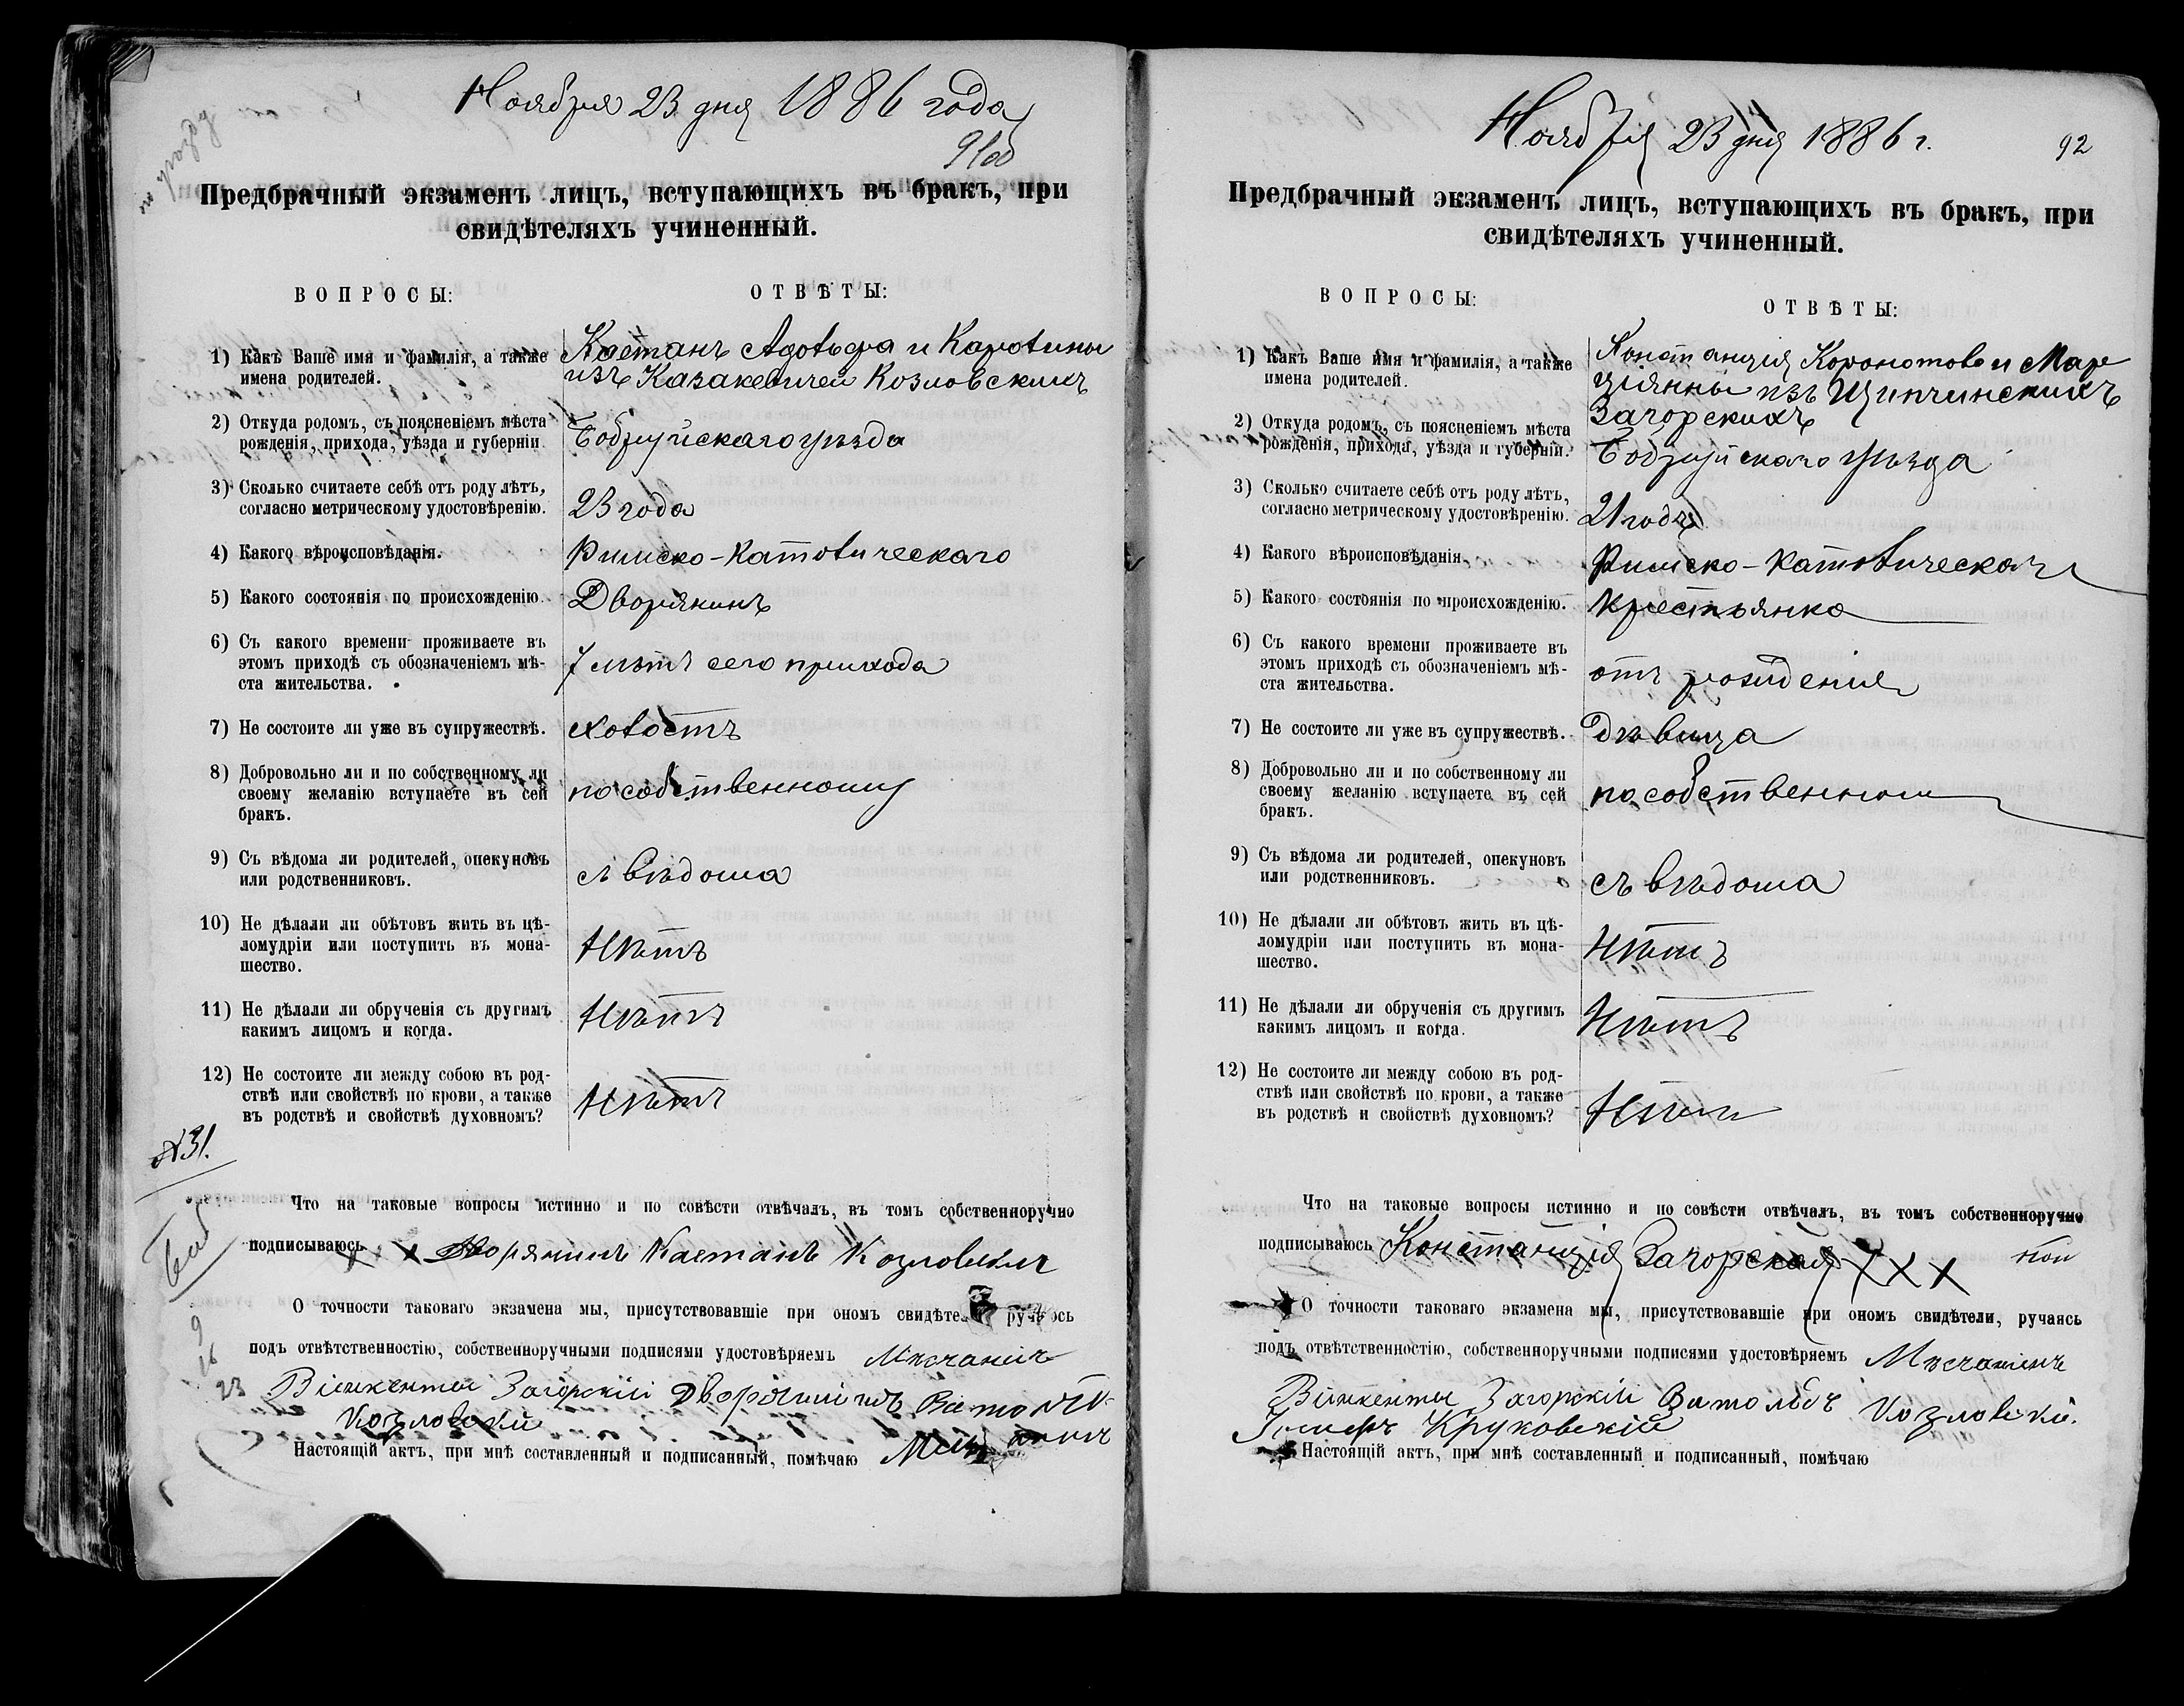 Ноября 23 дня 1886 года
91об
Предбрачный экзаменъ лицъ, вступающихъ въ бракъ, при
свидѣтеляхъ учиненный.
ВОПРОСЫ:
ОТВѢТЫ:
1) Какъ Ваше имя и фамилія, а также
имена родителей.
Каетанъ Адольфа и Каролины
изъ Казакевичей Козловскихъ
2) Откуда родомъ, съ поясненіемъ мѣста
рожденія, прихода, уѣзда и губерніи.
Бобруйскаго уѣзда
3) Сколько считаете себѣ отъ роду лѣтъ,
согласно метрическому удостовѣренію.
23 года
4) Какого вѣроисповѣданія.
Римско-Католическаго
5) Какого состоянія по происхожденію.
Дворянинъ
6) Съ какого времени проживаете въ
этомъ приходѣ съ обозначеніемъ мѣ-
ста жительства.
7 лѣтъ сего прихода
7) Не состоите ли уже въ супружествѣ.
холостъ
8) Добровольно ли и по собственному ли
своему желанію вступаете въ сей
бракъ.
по собственному
9) Съ вѣдома ли родителей, опекуновъ
или родственниковъ.
съ вѣдома
10) Не дѣлали ли обѣтовъ жить въ цѣ-
ломудріи или поступить въ мона-
шество.
Нѣтъ
11) Не дѣлали ли обрученія съ другимъ
какимъ лицомъ и когда.
Нѣтъ
12) Не состоите ли между собою въ род-
ствѣ или свойствѣ по крови, а также
въ родствѣ и свойствѣ духовномъ?
Нѣтъ
№31.
Что на таковые вопросы истинно и по совѣсти отвѣчалъ, въ томъ собственноручно
подписываюсь х х Дворянинъ Каетанъ Козловскій
О точности таковаго экзамена мы, присутствовавшіе при ономъ свидѣте ручаясь
подъ отвѣтственностію, собственноручными подписями удостовѣряемъ Мѣщанинъ
Викенты Загорскій Дворянинъ Витольдъ
Козловскій
Настоящій актъ, при мнѣ составленный и подписанный, помѣчаю
9
16
23
Ноября 23 дня 1886 г.
92
Предбрачный экзаменъ лицъ, вступающихъ въ бракъ, при
свидѣтеляхъ учиненный.
ВОПРОСЫ:
ОТВѢТЫ:
1) Какъ Ваше имя и фамилія, а также
имена родителей.
Констанція и Мар
ціянны изъ Щипчинскихъ
Загорскихъ
2) Откуда родомъ, съ поясненіемъ мѣста
рожденія, прихода, уѣзда и губерніи.
Бобруйскаго уѣзда
3) Сколько считаете себѣ отъ роду лѣтъ,
согласно метрическому удостовѣренію.
21 годъ
4) Какого вѣроисповѣданія.
Римско-Католическаго
5) Какого состоянія по происхожденію.
Крестьянка
6) Съ какого времени проживаете въ
этомъ приходѣ съ обозначеніемъ мѣ-
ста жительства.
отъ рожденія
7) Не состоите ли уже въ супружествѣ.
Дѣвица
8) Добровольно ли и по собственному ли
своему желанію вступаете въ сей
бракъ.
по собственному
9) Съ вѣдома ли родителей, опекуновъ
или родственниковъ.
съ вѣдома
10) Не дѣлали ли обѣтовъ жить въ цѣ-
ломудріи или поступить въ мона-
шество.
Нѣтъ
11) Не дѣлали ли обрученія съ другимъ
какимъ лицомъ и когда.
Нѣтъ
12) Не состоите ли между собою въ род-
ствѣ или свойствѣ по крови, а также
въ родствѣ и свойствѣ духовномъ?
Нѣтъ
Что на таковые вопросы истинно и по совѣсти отвѣчалъ, въ томъ собственноручно
подписываюсь Констанція Загорская х х х
О точности таковаго экзамена мы, присутствовавшіе при ономъ свидѣтели, ручаясь
подъ отвѣтственностію, собственноручными подписями удостовѣряемъ Мѣщанинъ
Викенты Загорскій Витольдъ Козловскій.
Іосифъ Круковскій
Настоящій актъ, при мнѣ составленный и подписанный, помѣчаю